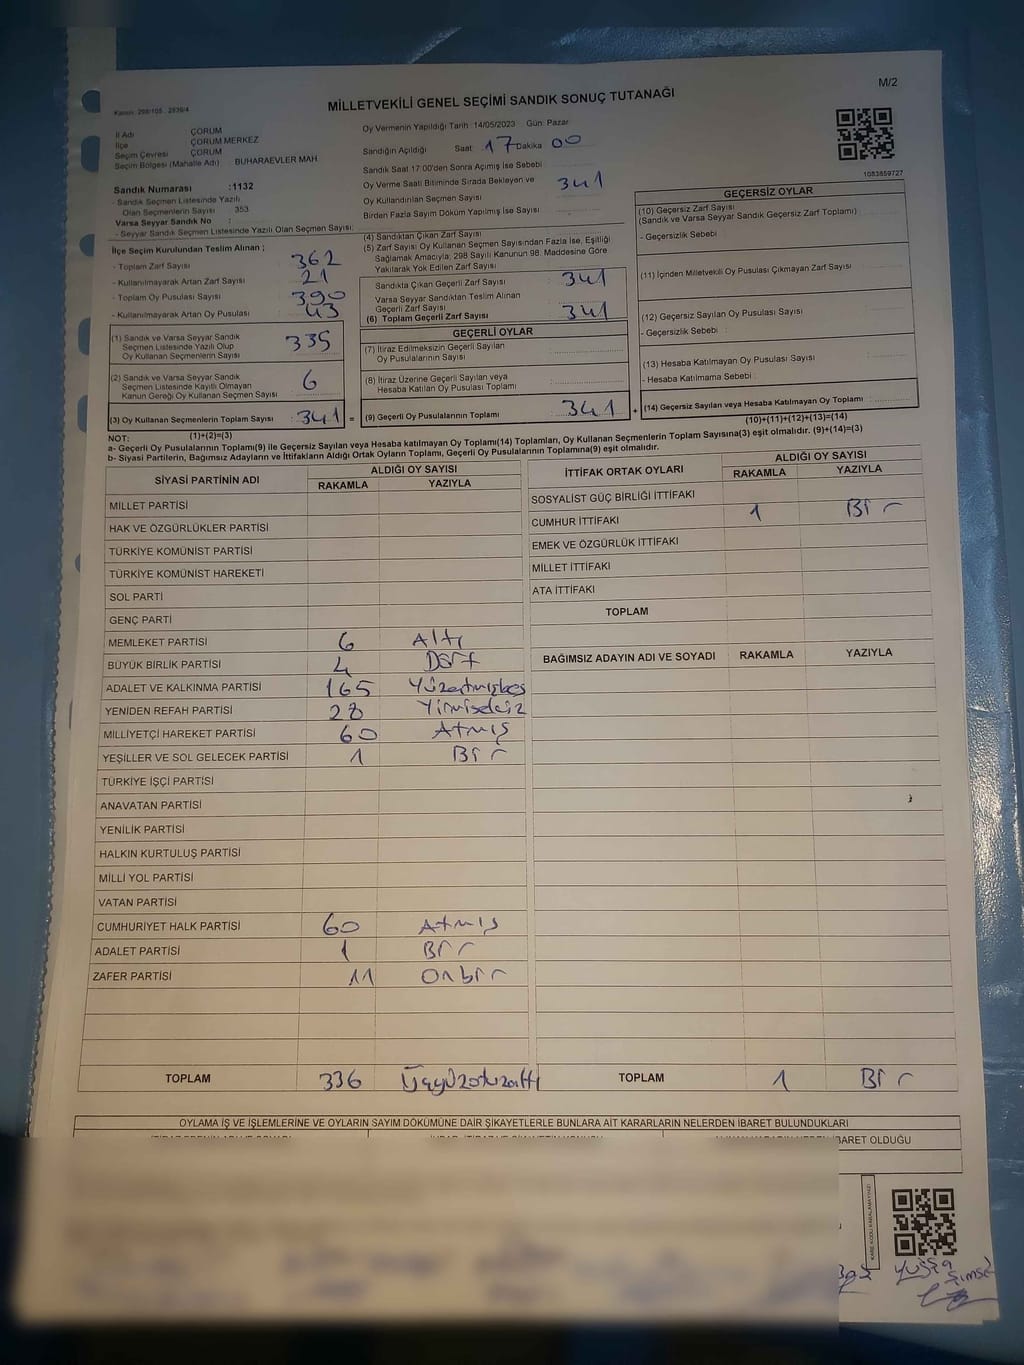 M/2
Kanun: 298/105 , 2839/4
MİLLETVEKİLİ GENEL SEÇİMİ SANDIK SONUÇ TUTANAĞI
İl Adı ÇORUM
İlçe ÇORUM MERKEZ
Seçim Çevresi ÇORUM
Seçim Bölgesi (Mahalle Adı) BUHARAEVLER MAH.
Sandık Numarası :1132
- Sandık Seçmen Listesinde Yazılı
Olan Seçmenlerin Sayısı 353
Varsa Seyyar Sandık No :
- Seyyar Sandık Seçmen Listesinde Yazılı Olan Seçmen Sayısı:
Oy Vermenin Yapıldığı Tarih :14/05/2023 Gün: Pazar
Sandığın Açıldığı Saat: 17 Dakika 00
Sandık Saat 17:00'den Sonra Açımış İse Sebebi
Oy Verme Saati Bitiminde Sırada Bekleyen ve
Oy Kullandırılan Seçmen Sayısı 341
Birden Fazla Sayım Döküm Yapılmış İse Sayısı
1083859727
İlçe Seçim Kurulundan Teslim Alınan ;
- Toplam Zarf Sayısı 362
- Kullanılmayarak Artan Zarf Sayısı 21
- Toplam Oy Pusulası Sayısı 390
- Kullanılmayarak Artan Oy Pusulası 43
(1) Sandık ve Varsa Seyyar Sandık
Seçmen Listesinde Yazılı Olup
Oy Kullanan Seçmenlerin Sayısı 335
(2) Sandık ve Varsa Seyyar Sandık
Seçmen Listesinde Kayıtlı Olmayan
Kanun Gereği Oy Kullanan Seçmen Sayısı 6
(3) Oy Kullanan Seçmenlerin Toplam Sayısı : 341 =
(1)+(2)=(3)
(4) Sandıktan Çıkan Zarf Sayısı
(5) Zarf Sayısı Oy Kullanan Seçmen Sayısından Fazla İse, Eşitliği
Sağlamak Amacıyla; 298 Sayılı Kanunun 98. Maddesine Göre
Yakılarak Yok Edilen Zarf Sayısı
Sandıkta Çıkan Geçerli Zarf Sayısı : 341
Varsa Seyyar Sandıktan Teslim Alınan
Geçerli Zarf Sayısı
(6) Toplam Geçerli Zarf Sayısı : 341
GEÇERLİ OYLAR
(7) İtiraz Edilmeksizin Geçerli Sayılan
Oy Pusulalarının Sayısı
(8) İtiraz Üzerine Geçerli Sayılan veya
Hesaba Katılan Oy Pusulası Toplamı
(9) Geçerli Oy Pusulalarının Toplamı : 341 +
GEÇERSİZ OYLAR
(10) Geçersiz Zarf Sayısı
(Sandık ve Varsa Seyyar Sandık Geçersiz Zarf Toplamı)
- Geçersizlik Sebebi :
(11) İçinden Milletvekili Oy Pusulası Çıkmayan Zarf Sayısı
(12) Geçersiz Sayılan Oy Pusulası Sayısı
- Geçersizlik Sebebi :
(13) Hesaba Katılmayan Oy Pusulası Sayısı
- Hesaba Katılmama Sebebi :
(14) Geçersiz Sayılan veya Hesaba Katılmayan Oy Toplamı :
(10)+(11)+(12)+(13)=(14)
NOT:
a- Geçerli Oy Pusulalarının Toplamı(9) ile Geçersiz Sayılan veya Hesaba katılmayan Oy Toplamı(14) Toplamları, Oy Kullanan Seçmenlerin Toplam Sayısına(3) eşit olmalıdır. (9)+(14)=(3)
b- Siyasi Partilerin, Bağımsız Adayların ve İttifakların Aldığı Ortak Oyların Toplamı, Geçerli Oy Pusulalarının Toplamına(9) eşit olmalıdır.
SİYASİ PARTİNİN ADI ALDIĞI OY SAYISI
RAKAMLA YAZIYLA
MİLLET PARTİSİ
HAK VE ÖZGÜRLÜKLER PARTİSİ
TÜRKİYE KOMÜNİST PARTİSİ
TÜRKİYE KOMÜNİST HAREKETİ
SOL PARTİ
GENÇ PARTİ
MEMLEKET PARTİSİ 6 Altı
BÜYÜK BİRLİK PARTİSİ 4 Dört
ADALET VE KALKINMA PARTİSİ 165 Yüzatmışbeş
YENİDEN REFAH PARTİSİ 28 Yirmisekiz
MİLLİYETÇİ HAREKET PARTİSİ 60 Atmış
YEŞİLLER VE SOL GELECEK PARTİSİ 1 Bir
TÜRKİYE İŞÇİ PARTİSİ
ANAVATAN PARTİSİ
YENİLİK PARTİSİ
HALKIN KURTULUŞ PARTİSİ
MİLLİ YOL PARTİSİ
VATAN PARTİSİ
CUMHURİYET HALK PARTİSİ 60 Atmış
ADALET PARTİSİ 1 Bir
ZAFER PARTİSİ 11 Onbir
TOPLAM 336 Üçyüzotuzaltı
İTTİFAK ORTAK OYLARI ALDIĞI OY SAYISI
RAKAMLA YAZIYLA
SOSYALİST GÜÇ BİRLİĞİ İTTİFAKI
CUMHUR İTTİFAKI 1 Bir
EMEK VE ÖZGÜRLÜK İTTİFAKI
MİLLET İTTİFAKI
ATA İTTİFAKI
TOPLAM
BAĞIMSIZ ADAYIN ADI VE SOYADI RAKAMLA YAZIYLA
TOPLAM 1 Bir
OYLAMA İŞ VE İŞLEMLERİNE VE OYLARIN SAYIM DÖKÜMÜNE DAİR ŞİKAYETLERLE BUNLARA AİT KARARLARIN NELERDEN İBARET BULUNDUKLARI
İBARET OLDUĞU